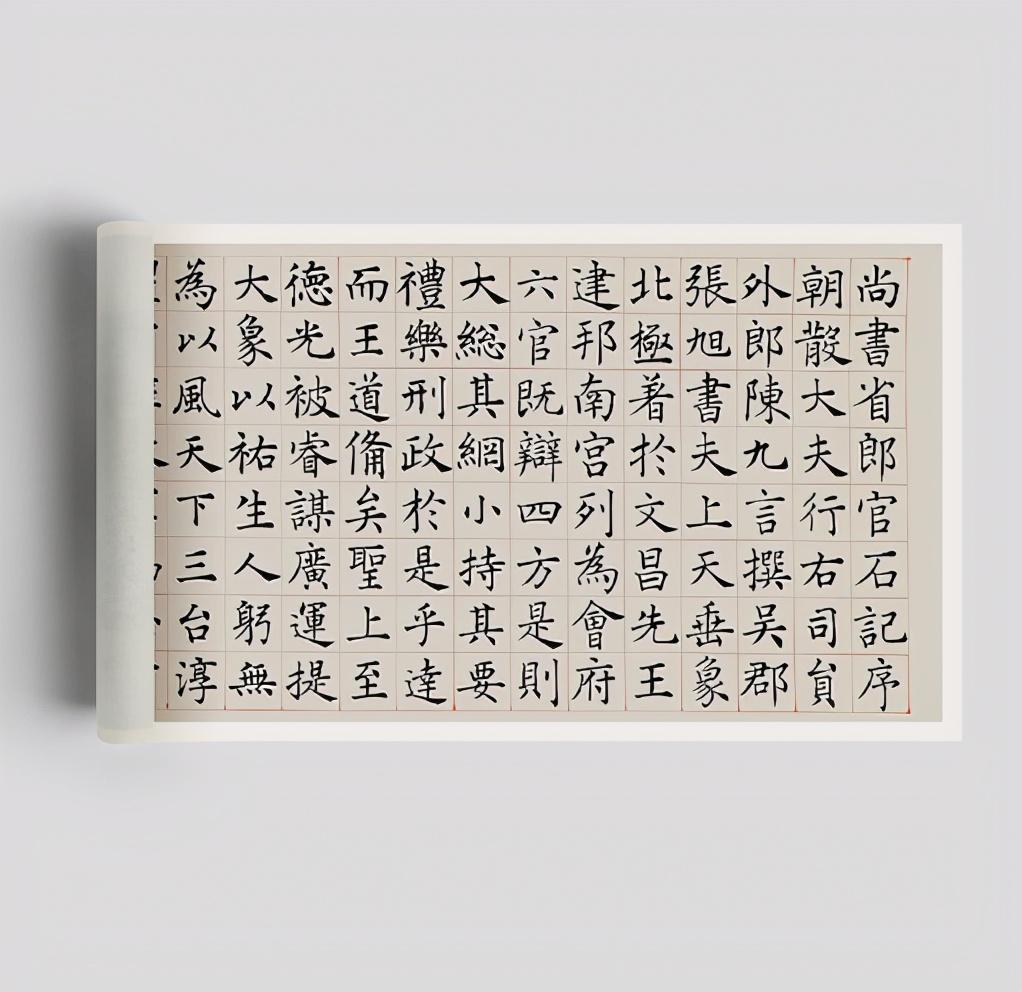 尚書省郎官石記序
朝散大夫行右司貟
外郎陳九言撰吳郡
張旭書夫上天垂象
北極著於文昌先王
建邦南宮列為會府
六官既辯四方是則
大総其綱小持其要
禮樂刑政於是乎達
而王道俻矣聖上至
德光被睿謀廣運提
大象以祐生人躬無
為以風天下三台淳